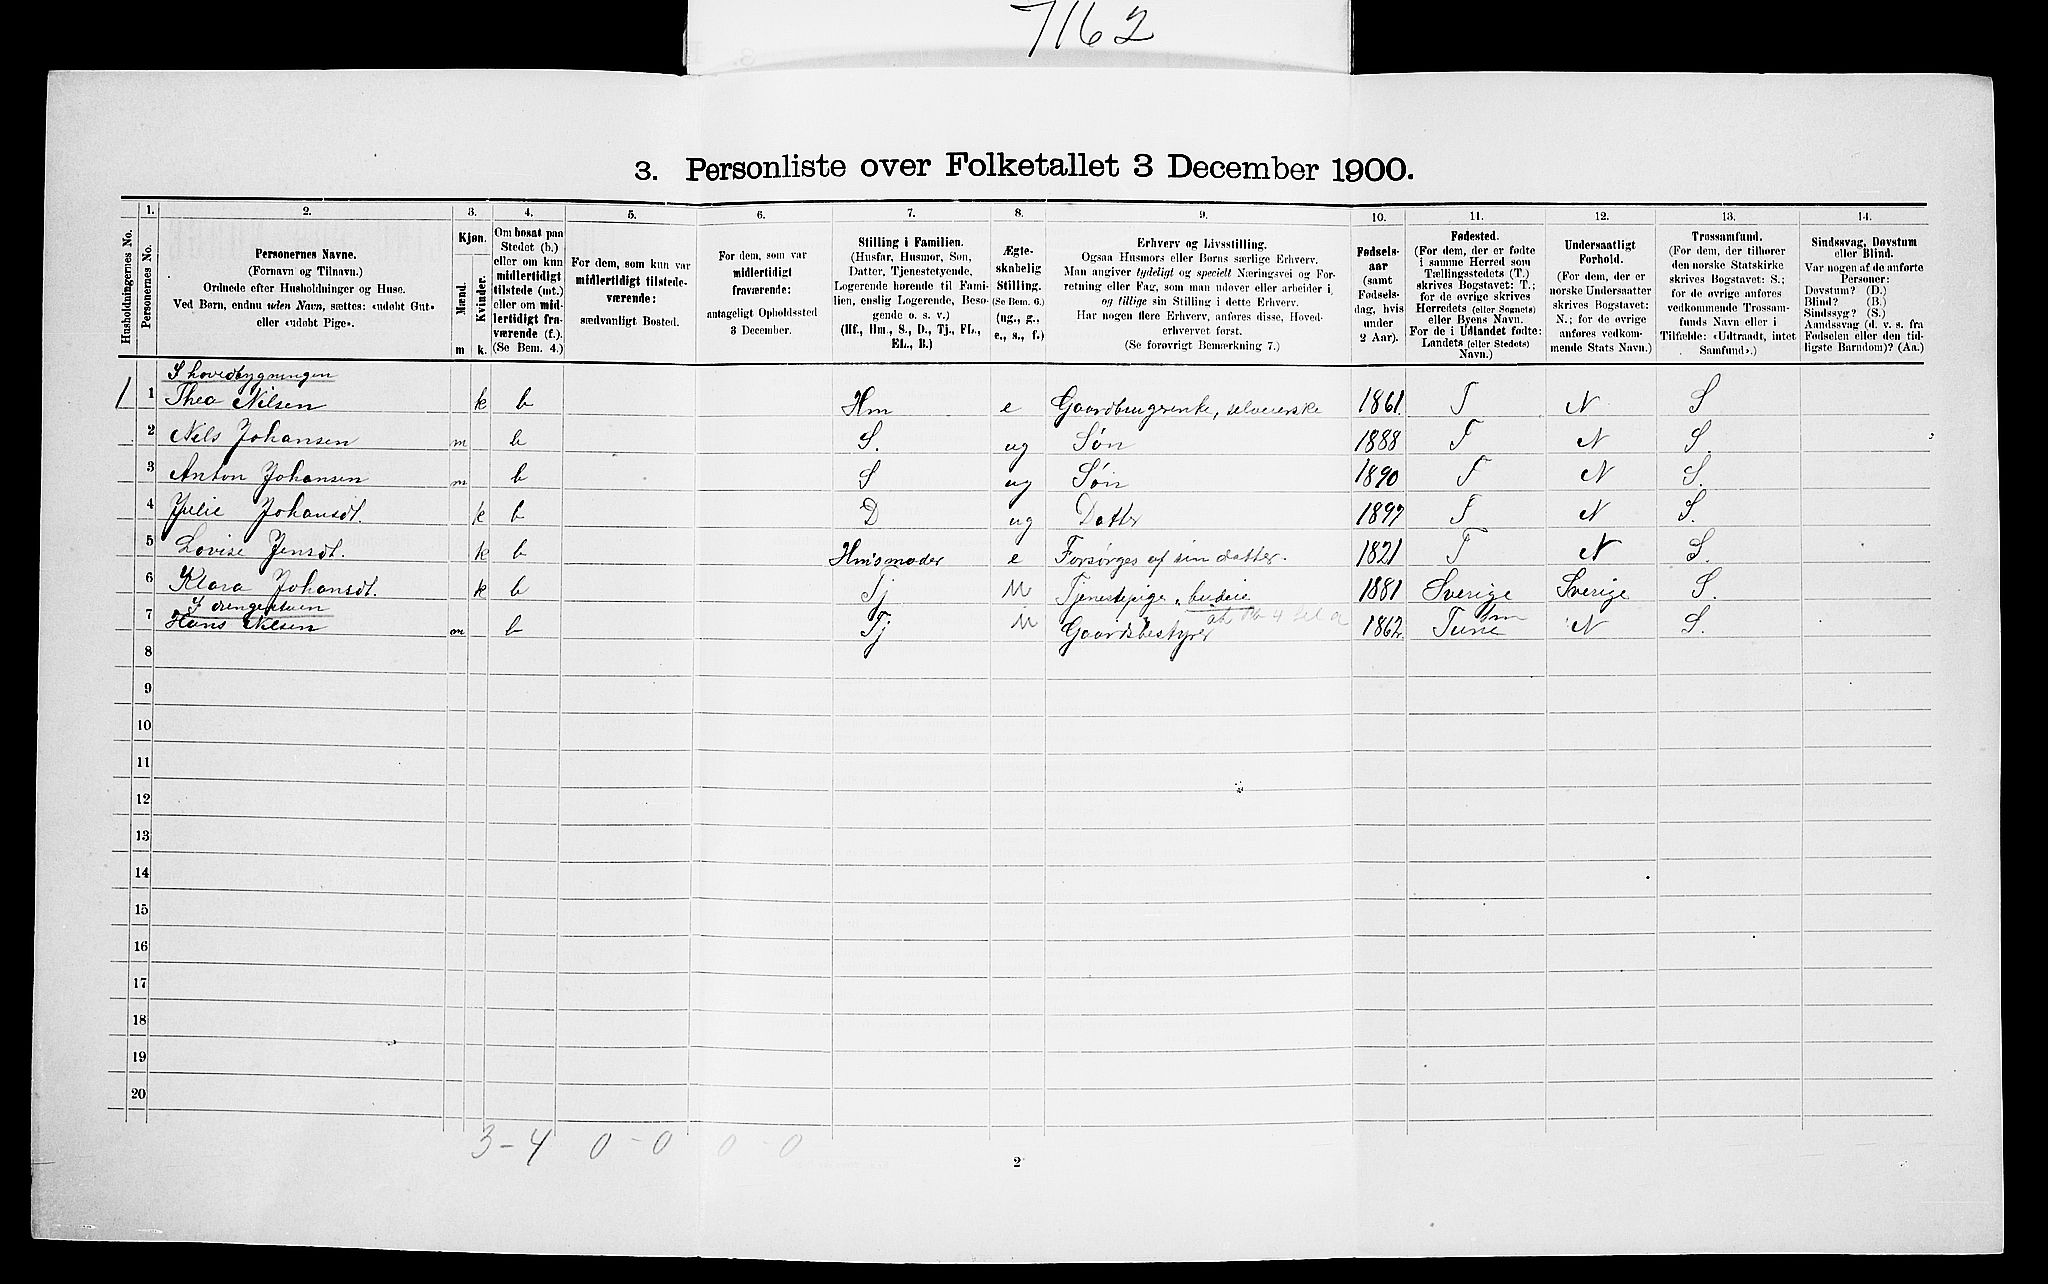 7162
3. Personliste over Folketallet 3 December 1900.
Husholdningernes No.
1.
Personernes No.
2.
Personernes Navne.
(Fornavn og Tilnavn.)
Ordnede efter Husholdninger og Huse.
Ved Børn, endnu uden Navn, sættes: «udøbt Gut»
eller «udøbt Pige».
3.
Kjøn.
Mænd.
Kvinder.
m k.
4.
Om bosat paa
Stedet (b.)
eller om kun
midlertidigt
tilstede (mt.)
eller om mid-
lertidigt fra-
værende (f.).
(Se Bem. 4.)
5.
For dem, som kun var
midlertidigt tilstede-
værende:
sædvanligt Bosted.
6.
For dem, som var
midlertidigt
fraværende:
antageligt Opholdssted
3 December.
7.
Stilling i Familien.
(Husfar, Husmor, Søn,
Datter, Tjenestetyende,
Logerende hørende til Fami-
lien, enslig Logerende, Besø-
gende o. s. v.)
(Hf., Hm., S., D., Tj., FL.,
EL., B.)
8.
Ægte-
skabelig
Stilling.
(Se Bem. 6.)
(ug., g.,
e., s., f.)
9.
Erhverv og Livsstilling.
Ogsaa Husmors eller Børns særlige Erhverv.
Man angiver tydeligt og specielt Næringsvei og For-
retning eller Fag, som man udøver eller arbeider i,
og tillige sin Stilling i dette Erhverv.
Har nogen flere Erhverv, anføres disse, Hoved-
erhvervet først.
(Se forøvrigt Bemærkning 7.)
10.
Fødsels-
aar
(samt
Fødsels-
dag, hvis
under
2 Aar).
11.
Fødested.
(For dem, der er fødte
i samme Herred som
Tællingsstedets (T.)
skrives Bogstavet: T.;
for de øvrige skrives
Herredets (eller Sognets)
eller Byens Navn.
For de i Udlandet fødte:
Landets (eller Stedets)
Navn.)
12.
Undersaatligt
Forhold.
(For dem, der er
norske Undersaatter
skrives Bogstavet:
N.; for de øvrige
anføres vedkom-
mende Stats Navn.)
13.
Trossamfund.
(For dem, der tilhører
den norske Statskirke
skrives Bogstavet: S.;
for de øvrige anføres
vedkommende Trossam-
funds Navn eller i
Tilfælde: «Udtraadt, intet
Samfund».)
14.
Sindssvag, Døvstum
eller Blind.
Var nogen af de anførte
Personer:
Døvstum? (D.)
Blind? (B.)
Sindssyg? (S.)
Aandssvag (d. v. s. fra
Fødselen eller den tid-
ligste Barndom)? (Aa.)
I hovedbygningen
1 1 Thea Nilsen k b Hm e Gaardbrugerenke, selveierske 1861 T N S
2 Nils Johansen m b S. ug Søn 1888 T N S.
3 Anton Johansen m b S ug Søn 1890 T N S.
4 Julie Johansdt. k b D ug Datter 1897 T N S.
5 Lovise Jensdt. k b Hm's moder e Forsørges af sin datter. 1821 T N S.
6 Klara Johansdt. k b Tj U Tjenestepige, budeie 1881 Sverige Sverige S.
I drengestuen
7 Hans Nilsen m b Tj U Gaardsbestyrer 1862 Tune Sm N S.
8
9
10
11
12
13
14
15
16
17
18
19
20
3 - 4 0 - 0 0 - 0
2